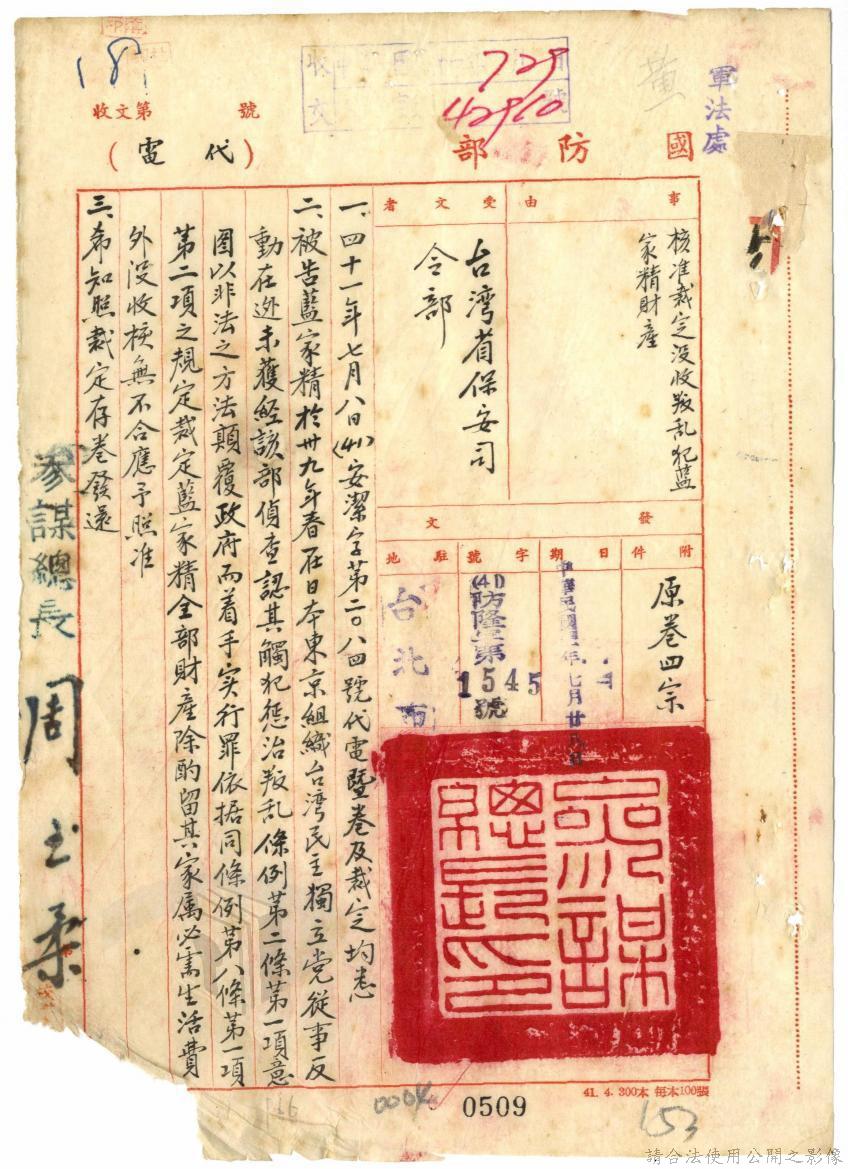 軍法處
國防部
(代電)
收文第 號
729
42960
黃
事由
核准裁定没收叛乱犯藍
家精財產
受文者
台湾省保安司
令部
發文
附件
原卷四宗
日期
中華民國四一年七月廿八日
字號
(41)防隆字第
1545號
駐地
台北市
一、四十一年七月八日(41)安潔字第二〇八四號代電暨卷及裁定均悉
二、被告藍家精於卅九年春在日本東京組織台湾民主獨立党從事反
動在逃未獲經該部偵查認其觸犯懲治叛乱條例第二條第一項意
圖以非法之方法顛覆政府而着手实行罪依据同條例第八條第一項
第二項之規定裁定藍家精全部財產除酌留其家属必需生活費
外没收核無不合應予照准
三、希知照裁定存卷發還
參謀總長 周至柔
參謀總長印
0509
41. 4. 300本 每本100張
153
請合法使用公開之影像